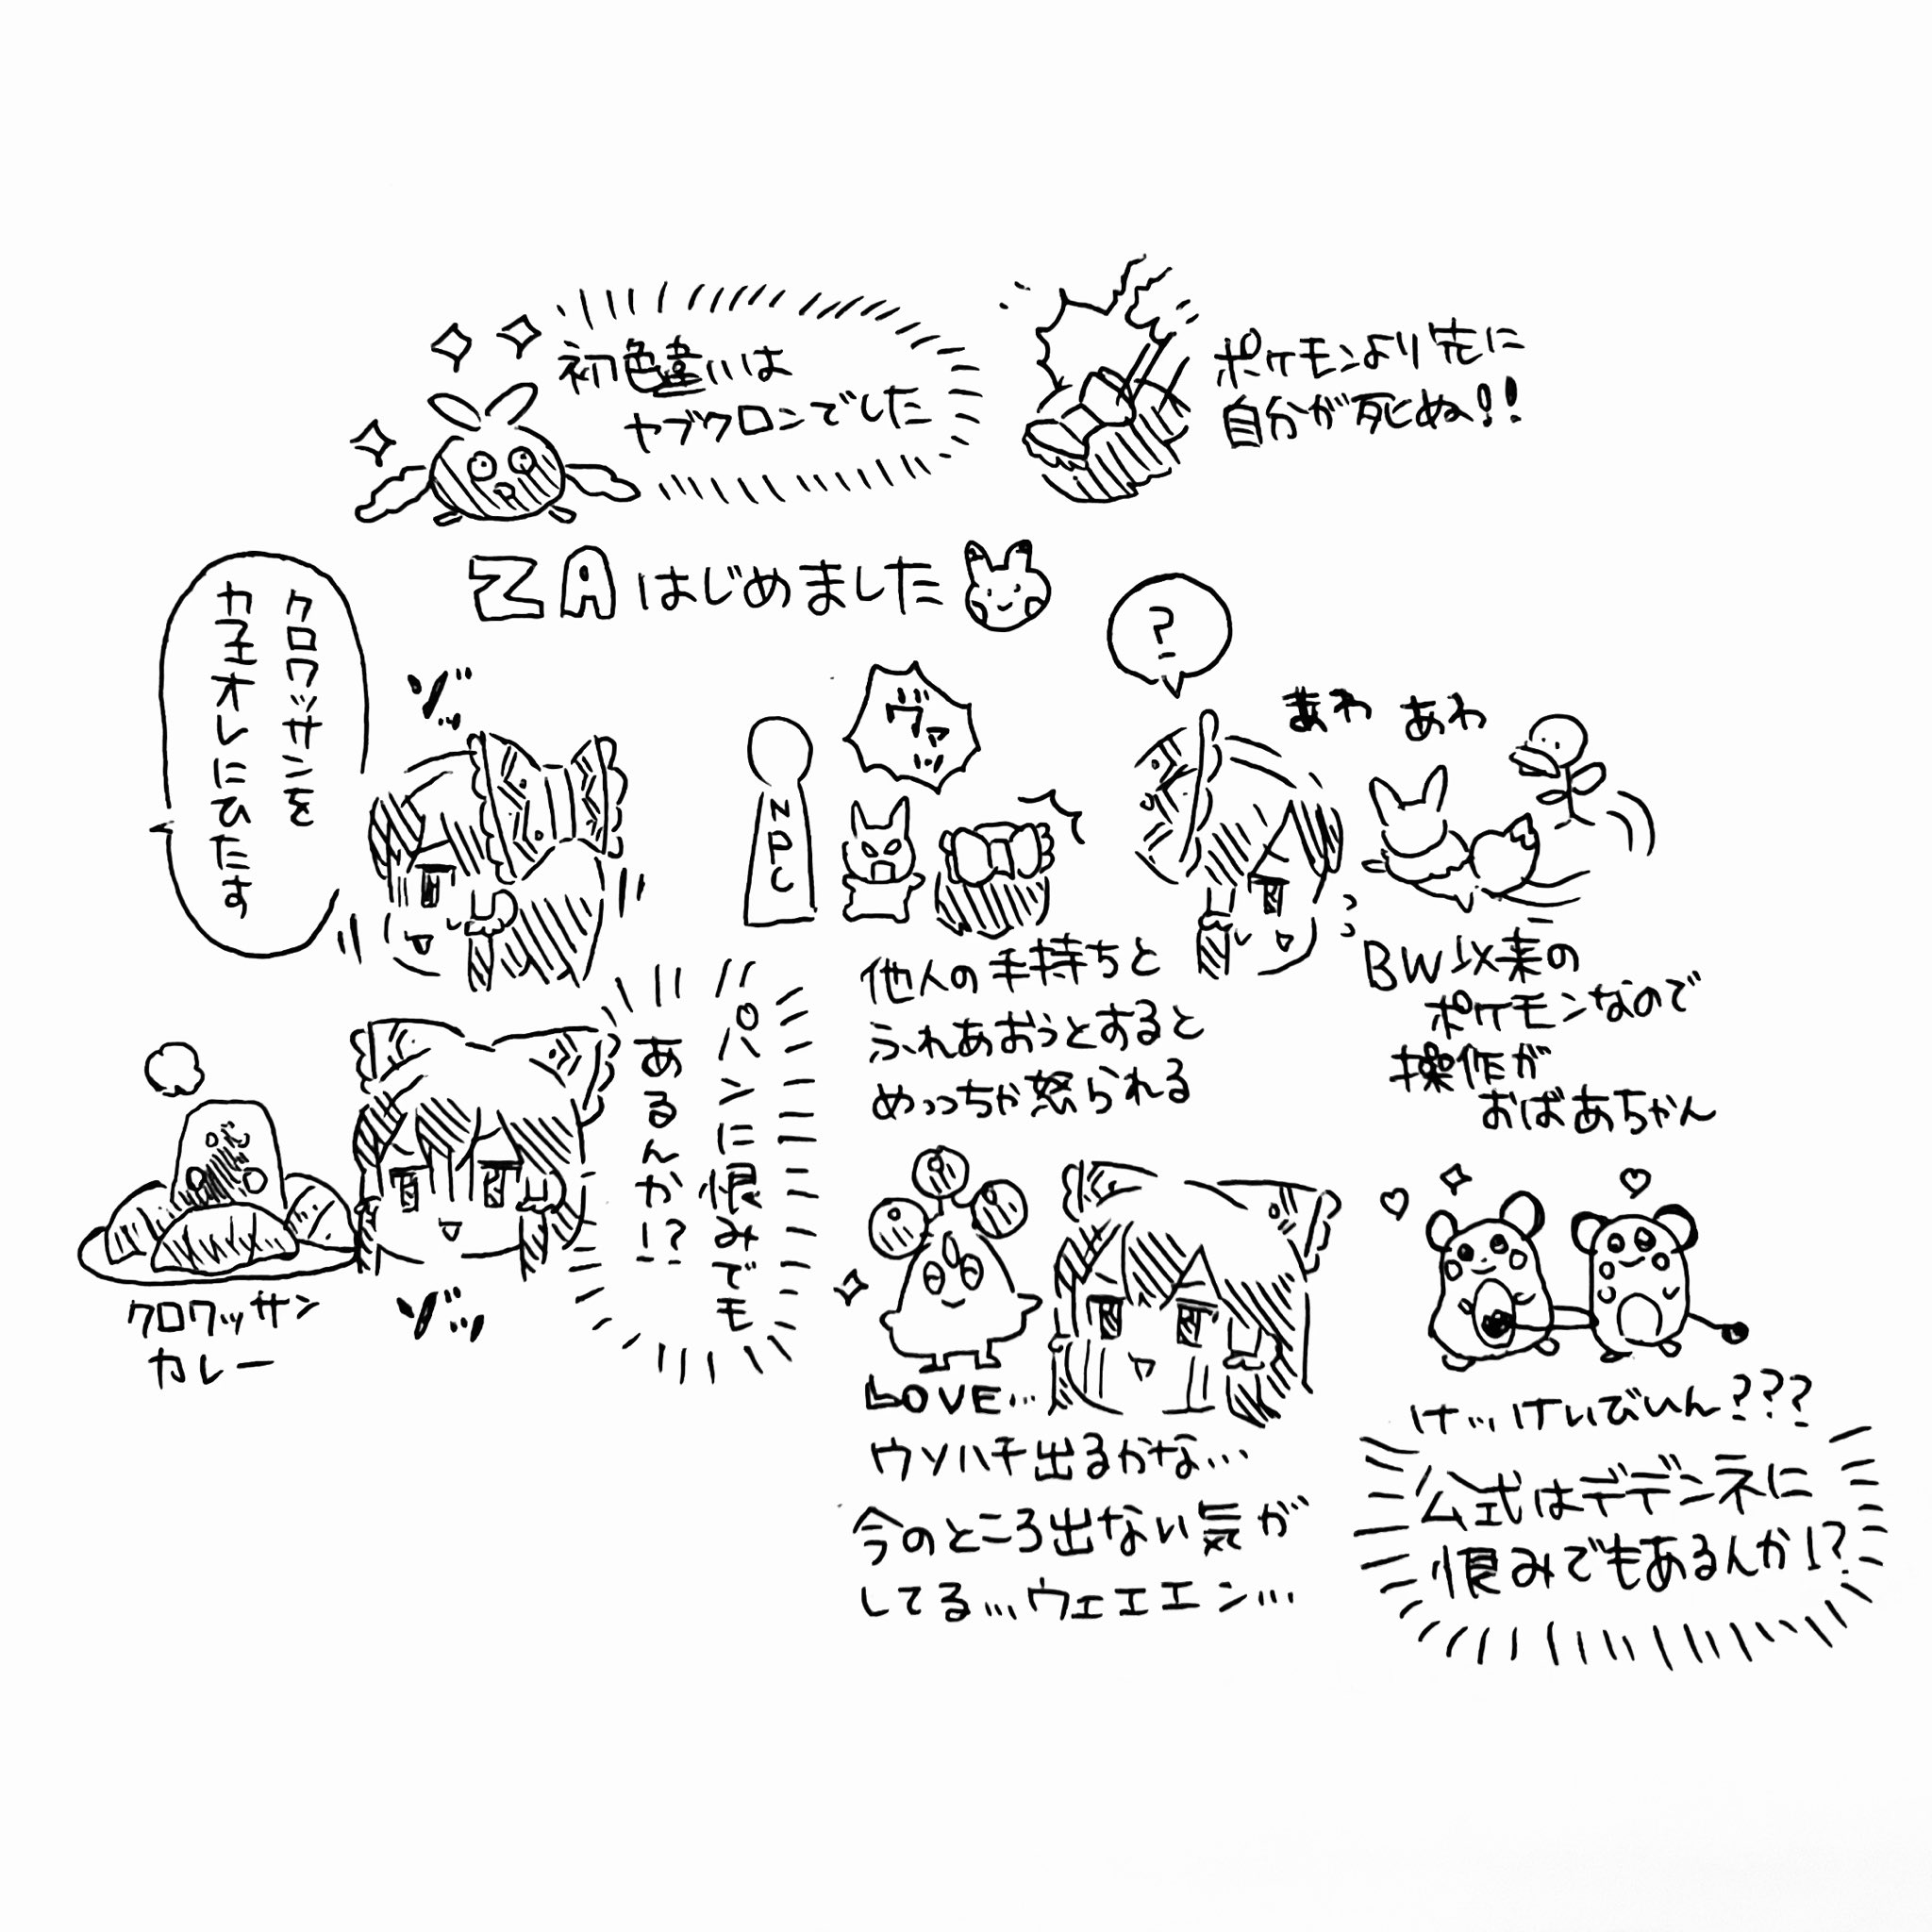 初色違いは
ヤブクロンでした
ポケモンより先に
自分が死ぬ!!
ZAはじめました
クロワッサンを
カフェオレにひたす
ゾッ
NPC
ヴァッ
?
あわ あわ
他人の手持ちと
ふれあおうとすると
めっちゃ怒られる
BW以来の
ポケモンなので
操作が
おばあちゃん
パンに恨みでも
あるんか!?
クロワッサン
カレー
ゾッ
LOVE...
ウソハチ出るかな...
今のところ出ない気が
してる...ウェエエン...
け...けいびいん???
公式はデデンネに
恨みでもあるんか!?